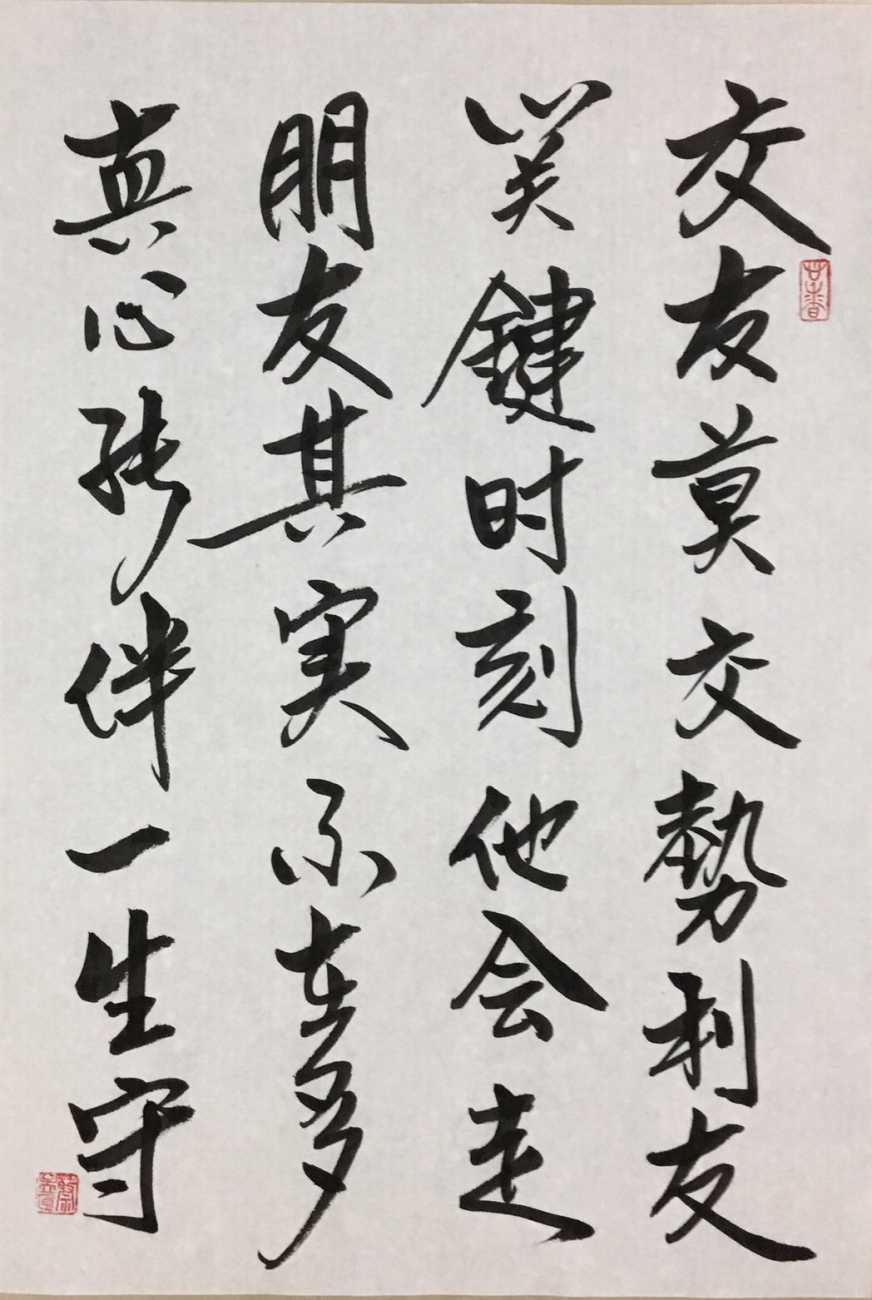 交友莫交勢利友
关鍵时刻他会走
朋友其实不在多
真心能伴一生守